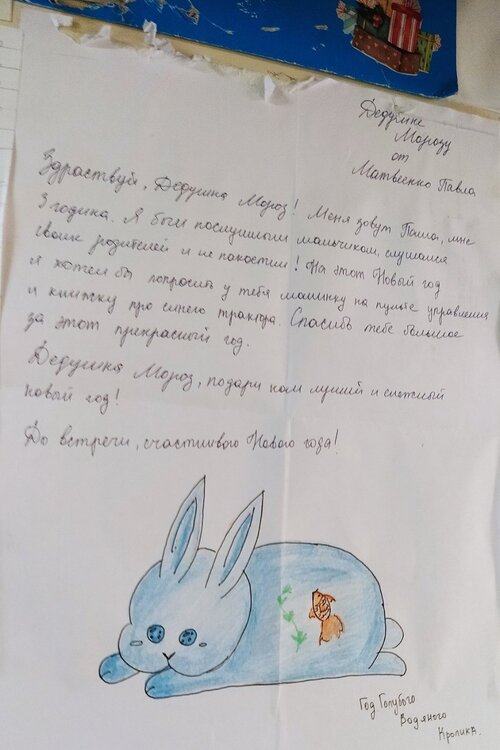 Дедушке
Морозу
от
Матвиенко Павла
Здраствуй, Дедушка Мороз! Меня зовут Паша, мне
3 годика. Я был послушным мальчиком, слушался
своих родителей и не пакостил! На этот Новый год
я хотел бы попросить у тебя машинку на пульте управления
и книжку про синего трактора. Спасибо тебе большое
за этот прекрасный год.
Дедушка Мороз, подари нам лучший и снежный
новый год!
До встречи, счастливого Нового года!
Год Голубого
Водяного
Кролика.